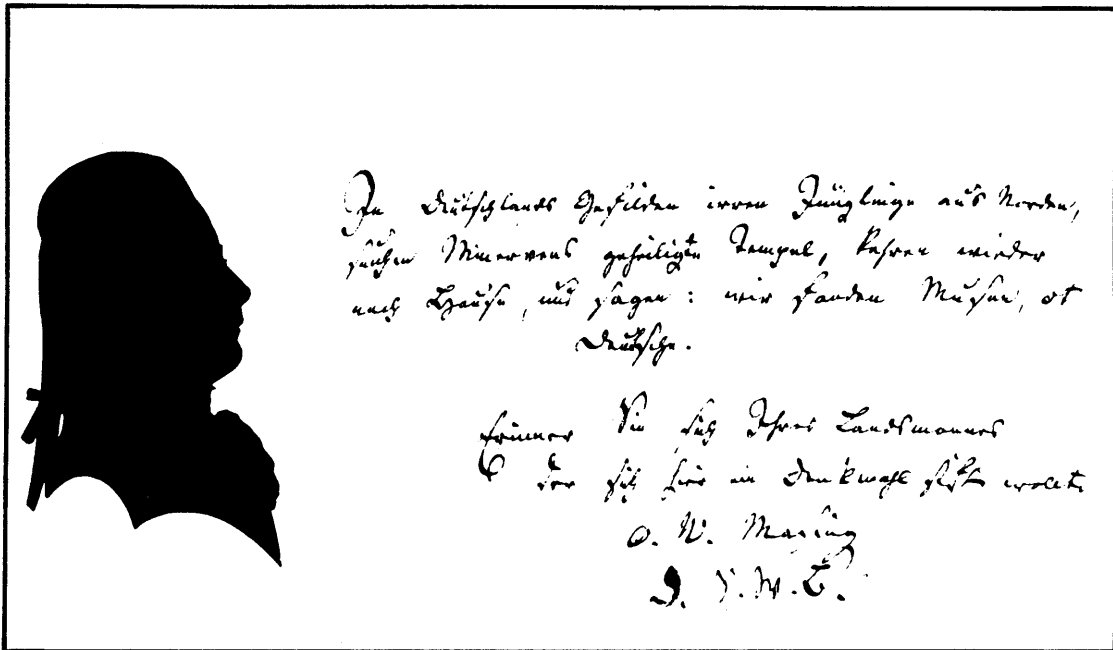 In Deutschlands Gefilden irren Jünglinge aus Norden,
suchen Minervens geheiligte Tempel, kehren wieder
nach Hause, und sagen: wir fanden Musen, ot
Deutsche.
Erinner Sie sich Ihres Landsmannes
der sich hier ein Denkmahl wollte
O. W. Masing
D. W. B.